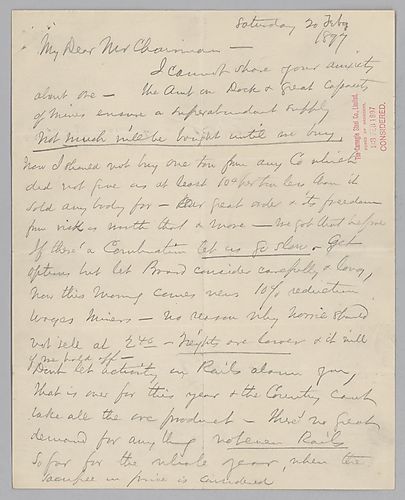 Saturday 20 Feby
1897
My Dear Mr Chairman —
I cannot share your anxiety
about ore — the Amt on Dock & great Capacity
of Mines ensure a superabundant supply
Not much will be bought until we buy
The Carnegie Steel Co., Limited.
BOARD OF MANAGERS,
FEB 1897
CONSIDERED.
Now I should not buy one ton from any Co which
did not give us at least 10¢ per ton less than it
sold any body for — Our great order & its freedom
from risk is worth that & more — We got that before
If there's a Combination let us go slow & Get
options but let Board consider carefully & long,
Now this Morning comes news 10% reduction
wages Miners — no reason why Norrie should
not sell at — freights are lower & it will
if we hold off —
Don't let activity in Rails alarm you,
That is over for this year & the Country can't
take all the ore product — There's no great
demand for anything not even Rails
so far for the whole year, when the
sacrifice in price is considered